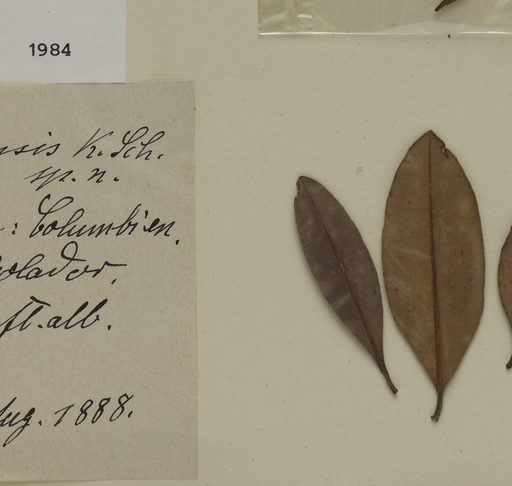 1984
nsis K. Sch.
sp. n.
: Columbien,
olador,
fl. alb.
Aug. 1888.